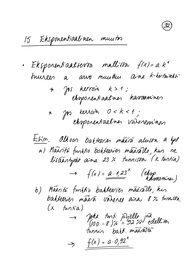 32
15 Eksponentiaalinen muutos
• Eksponentiaalisessa mallissa f(x) = a·kˣ
suureen a arvo muuttuu aina k-kertaiseksi
* Jos kerroin k > 1,
eksponentiaalinen kasvaminen
* Jos kerroin 0 < k < 1,
eksponentiaalinen väheneminen
Esim. Olkoon bakteerien määrä aluksi a kpl
a) Määritä funktio bakteerien määrälle, kun ne
lisääntyvät aina 23 % tunnissa (x tuntia)
→ f(x) = a·1,23ˣ (eksp. kasvaminen)
b) Määritä funktio bakteerien määrälle, kun
bakteerien määrä vähenee aina 8 % tunnissa
(x tuntia)
→ Joka tunti jäljellä on
(100 - 8)% = 92 % edellisen
tunnin bakt. määrästä
→ f(x) = a·0,92ˣ